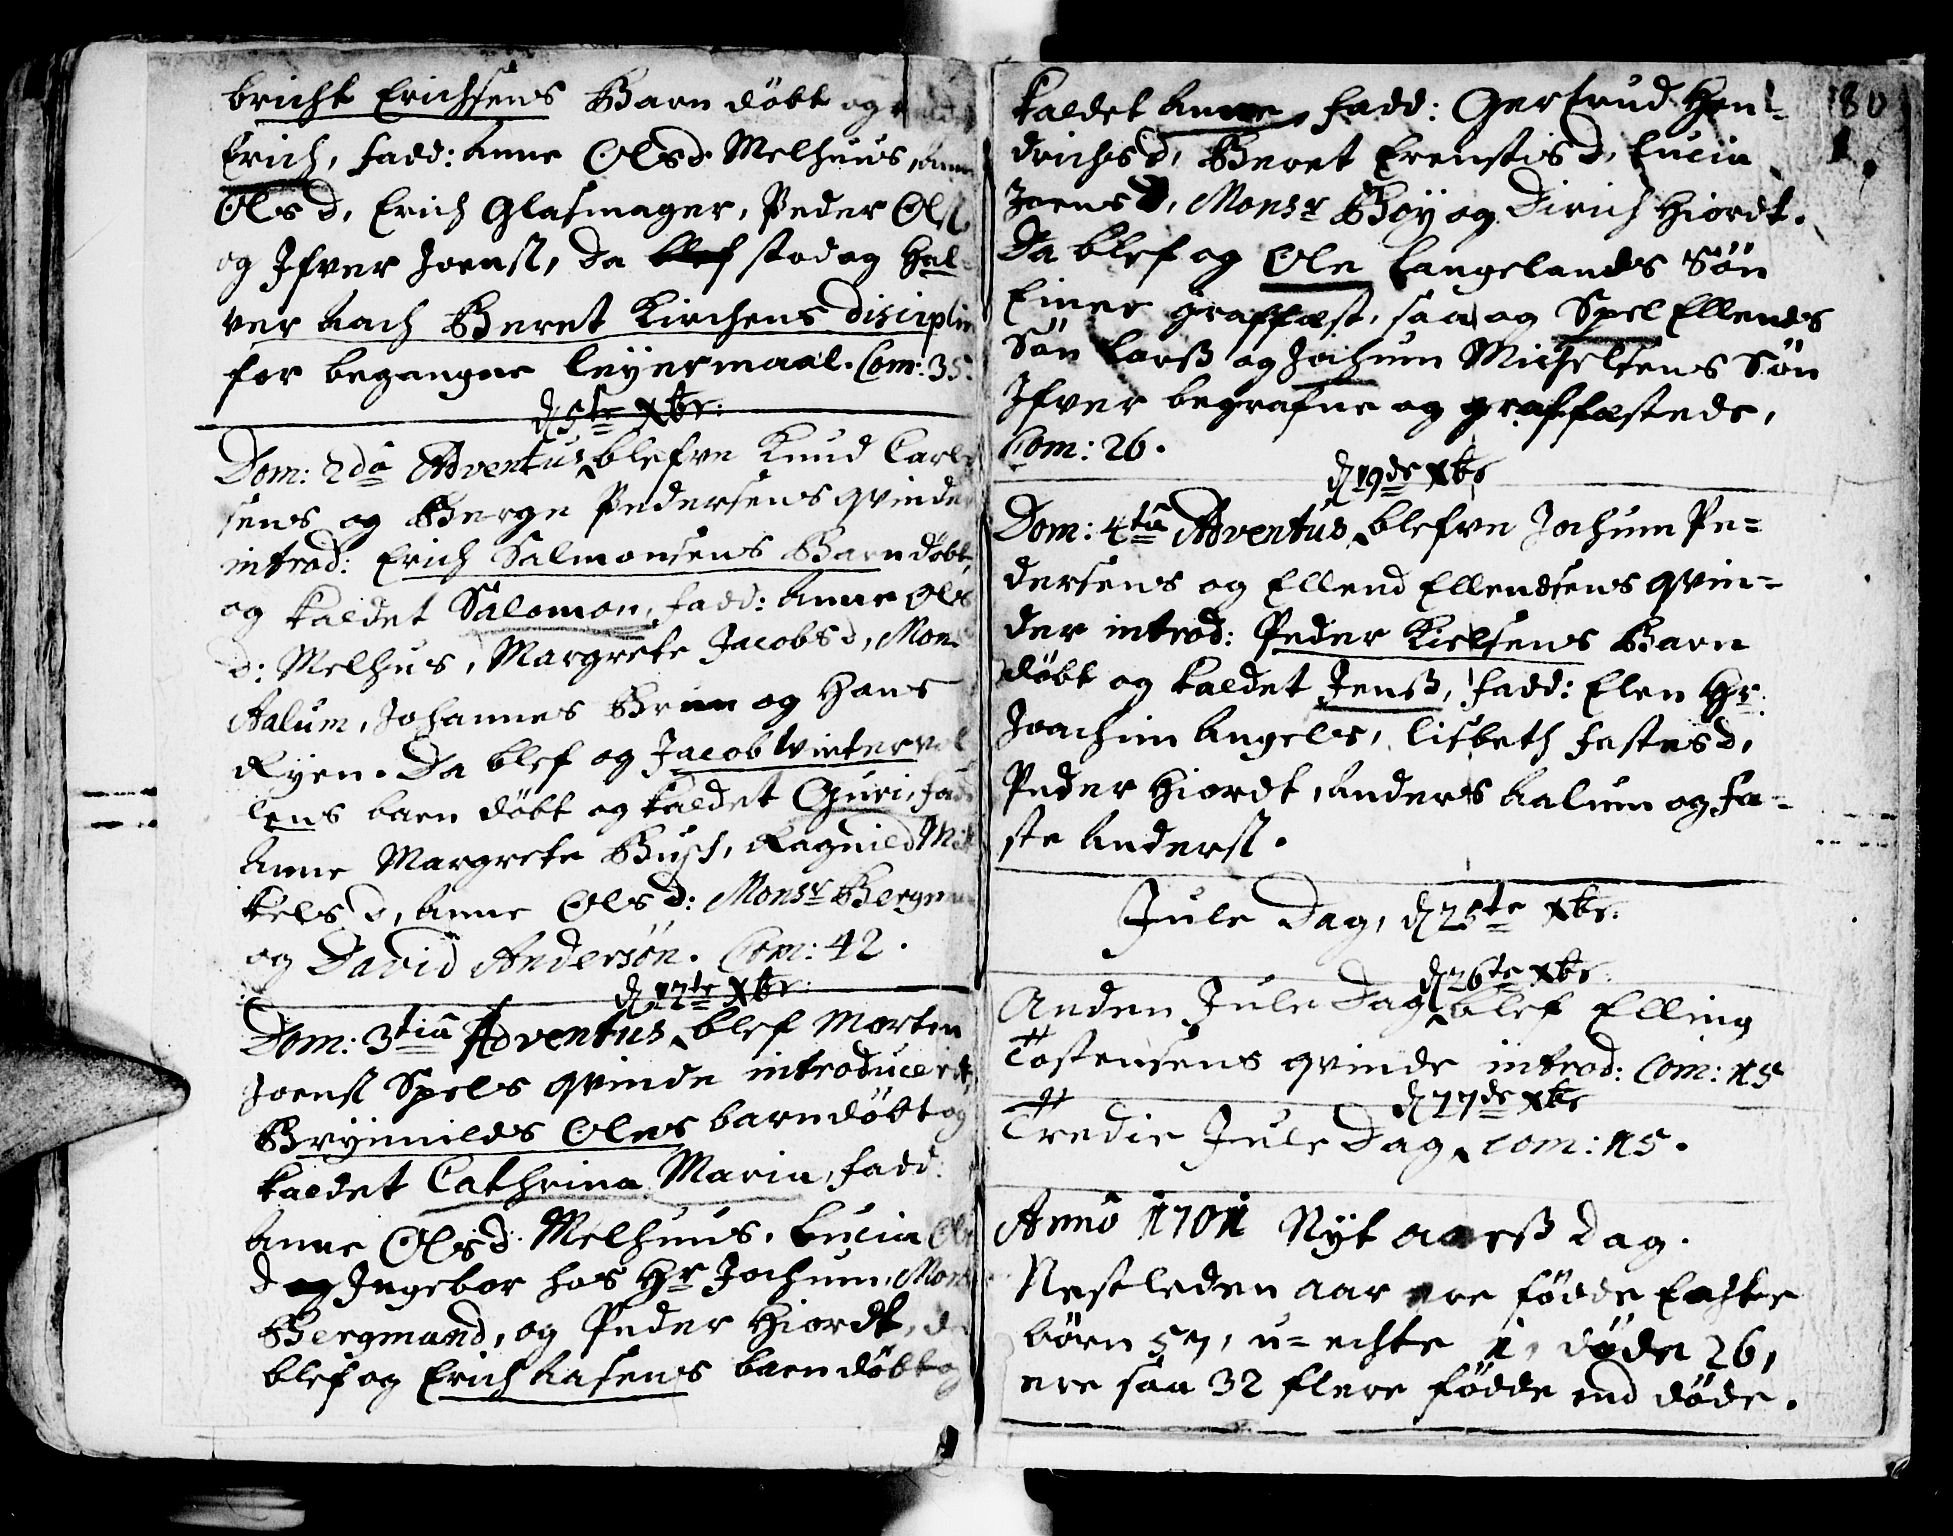 bricht Erichsens Barn döbt og
Erich, fadd: Anne Olsd. Melhuus, Anne
Olsd, Erich Glasmager, Peder Olss
og Ifver Joenss, Da blef stod og Hal-
vor Aach Beret Kirchens disciplin
for begangne leyermaal. Com: 35.
d 5te Xbr:
Dom: 2da Adventus blefve Knud Carl-
sens og Berge Pedersens qvinder
introd: Erich Salmonsens Barn döbt,
og kaldet Salomon, fadd: Anne Ols
d: Melhus, Margrete Jacobsd, Mons
Aalum, Johannes Brun og Hans
Ryen. Da blef og Jacob Vintervol
lens baen döbt og kaldet Guri, fad
Anne Margrete Busch, Ragnild Mik
kelsd, Anne Olsd: Monsr Bergman
og David Andersön. Com: 42.
d 12te Xbr:
Dom: 3tia Adventus blef Morten
Joenss Spels qvinde introduceret
Brynnilds Oles barn döbt og
kaldet Cathrina Maria, fadd:
Anne Olsd. Melhuus, Lucia Ols
d og Ingebor hos Hr Jochum, Mons
Bergmand, og Peder Hiordt, da
blef og Erich Aasens baen döbt og
80
kaldet Anne, fadd: Gertrud Hen-
drichsd, Beret Erenstisd, Lucia
Joensd, Monsr Boy og Dirich Hiordt.
Da blef og Ole Langelands Sön
Einer graffæst, saa og Spel Ellends
Sön Larss og Jochum Michelsens Sön
Ifver begrafne og graffæstede,
Com: 26.
d 19de Xbr
Dom: 4ta Adventus blefve Jochum Pe=
dersens og Ellend Ellendsens qvin=
der introd: Peder Kielsens Barn
döbt og kaldet Jenss, fadd: Elen Hr.
Joachim Angels, Lisbeth Fastesd,
Peder Hiordt, Anders Aalum og Fa=
ste Anderss.
Jule Dag, d 25te Xbr.
d 26te Xbr.
Anden Jule Dag blef Elling
Tostensens qvinde introd: Com: 15
d 27de Xbr
Tredie Jule Dag, com: 15.
Anno 1701 Nyt aarss dag.
Nestleden aar ere födde Echte
börn 57, u=echte 1, döde 26,
ere saa 32 flere födde end döde.